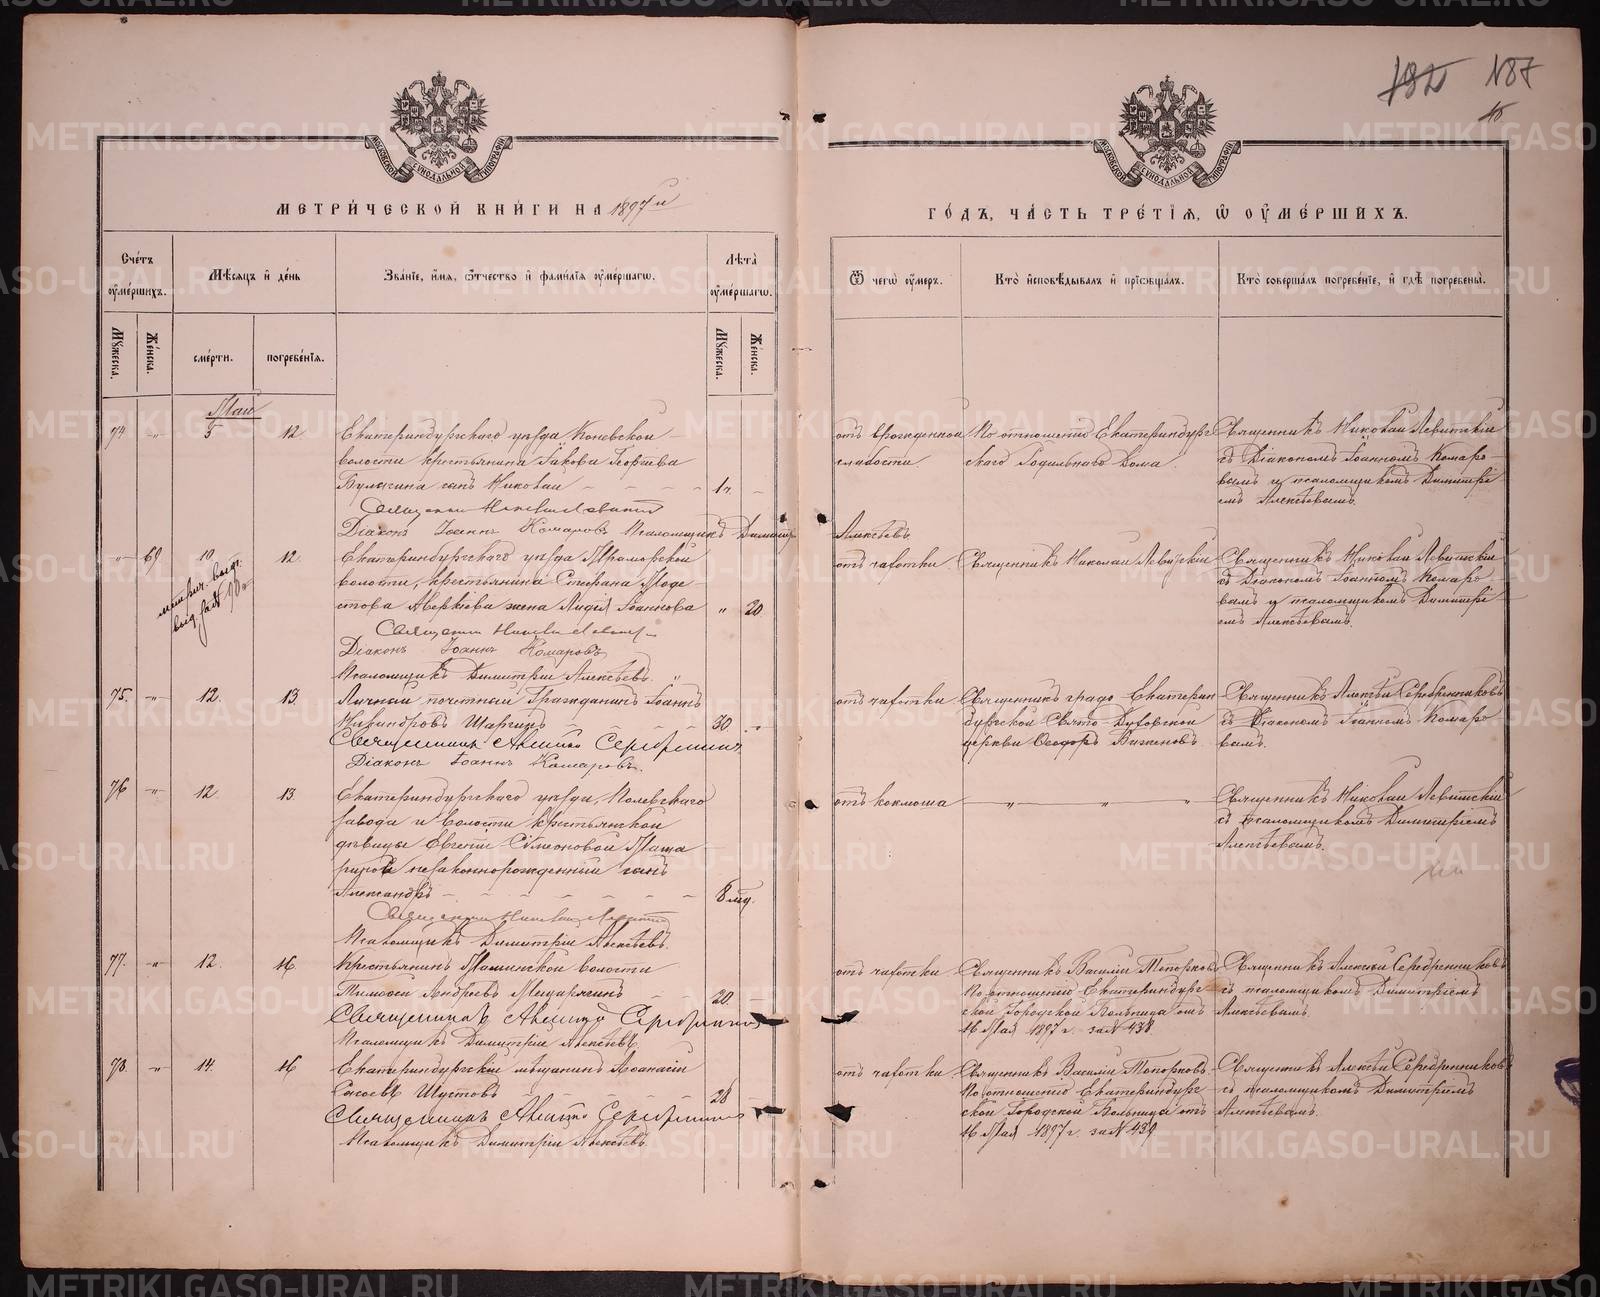 МЕТРИ́ЧЕСКОЙ КНИ́ГИ НА 1897й
ГО́ДЪ, ЧА́СТЬ ТРЕ́ТІЯ, Ѡ ОУ҆МЕ́РШИХЪ.
187
МОСКОВСКОЙ СѴНОДАЛЬНОЙ ТИПОГРАФІИ
МОСКОВСКОЙ СѴНОДАЛЬНОЙ ТИПОГРАФІИ
Сче́тъ оу҆ме́ршихъ.
Мѣ́сяцъ и҆ де́нь
Зва́ніе, и҆́мя, ѻ҆́тчество и҆ фами́лія оу҆ме́ршагѡ.
Лѣ́та оу҆ме́ршагѡ.
Ѿ чегѡ̀ оу҆́меръ.
Кто̀ и҆сповѣ́дывалъ и҆ прїѡбща́лъ.
Кто̀ соверша́лъ погребе́ніе, и҆ гдѣ̀ погребены̀.
Мꙋ́жеска.
Же́нска.
сме́рти.
погребе́нія.
Мꙋ́жеска.
Же́нска.
Май
74 " 5 12.
Екатеринбургскаго уѣзда Коневской
волости крестьянина Іакова Георгіева
Булыгина сынъ Николай 1 ч.
Священникъ Николай Левитскій
Діаконъ Іоаннъ Комаровъ Псаломщикъ Димитрій Алексѣевъ.
отъ врожденной
слабости.
По отношенію Екатеринбург
скаго Родильнаго Дома.
Священникъ Николай Левитскій
съ Діакономъ Іоанномъ Комаро
вымъ и псаломщикомъ Димитрі
емъ Алексѣевымъ.
" 69 10 12.
метрич. выдр.
Екатеринбургскаго уѣзда Мраморской
волости, крестьянина Стефана Моде
стова Аверкіева жена Лидія Іоаннова " 20.
Священникъ Николай Левитскій
Діаконъ Іоаннъ Комаровъ
Псаломщикъ Димитрій Алексѣевъ.
отъ чахотки
Священникъ Николай Левитскій
Священникъ Николай Левитскій
съ Діакономъ Іоанномъ Комаро
вымъ и псаломщикомъ Димитрі
емъ Алексѣевымъ.
75. " 12. 13.
Личный почетный Гражданинъ Іоаннъ
Никаноровъ Шаргинъ 30 "
Священникъ Алексій Серебренниковъ
Діаконъ Іоаннъ Комаровъ.
отъ чахотки
Священникъ градо Екатерин
бургской Свято Духовской
церкви Ѳеодоръ
Священникъ Алексѣй Серебренниковъ
съ Діакономъ Іоанномъ Комаро
вымъ.
76 " 12. 13.
Екатеринбургскаго уѣзда, Полевскаго
завода и волости крестьянской
дѣвицы Евгеніи Симеоновой
незаконнорожденный сынъ
Александръ 8 мѣс.
Священникъ Николай Левитскій
Псаломщикъ Димитрій Алексѣевъ.
отъ коклюша " " "
Священникъ Николай Левитскій
съ псаломщикомъ Димитріемъ
Алексѣевымъ.
77. " 12. 16.
Крестьянинъ волости
Тимоѳей Андреевъ Мещарягинъ 20
Священникъ Алексій Серебренниковъ
Псаломщикъ Димитрій Алексѣевъ.
отъ чахотки
Священникъ Василій Топорковъ
По отношенію Екатеринбург
ской Городской Больницы отъ
16 Мая 1897 г. за № 438
Священникъ Алексій Серебренниковъ
съ псаломщикомъ Димитріемъ
Алексѣевымъ.
78. " 14. 16
Екатеринбургскій мѣщанинъ Аѳанасій
Шустовъ 28
Священникъ Алексій Серебренниковъ
Псаломщикъ Димитрій Алексѣевъ.
отъ чахотки
Священникъ Василій Топорковъ.
По отношенію Екатеринбург
ской Городской Больницы отъ
16 Мая 1897 г. за № 439
Священникъ Алексѣй Серебренниковъ
съ псаломщикомъ Димитріемъ
Алексѣевымъ.
METRIKI.GASO-URAL.RU